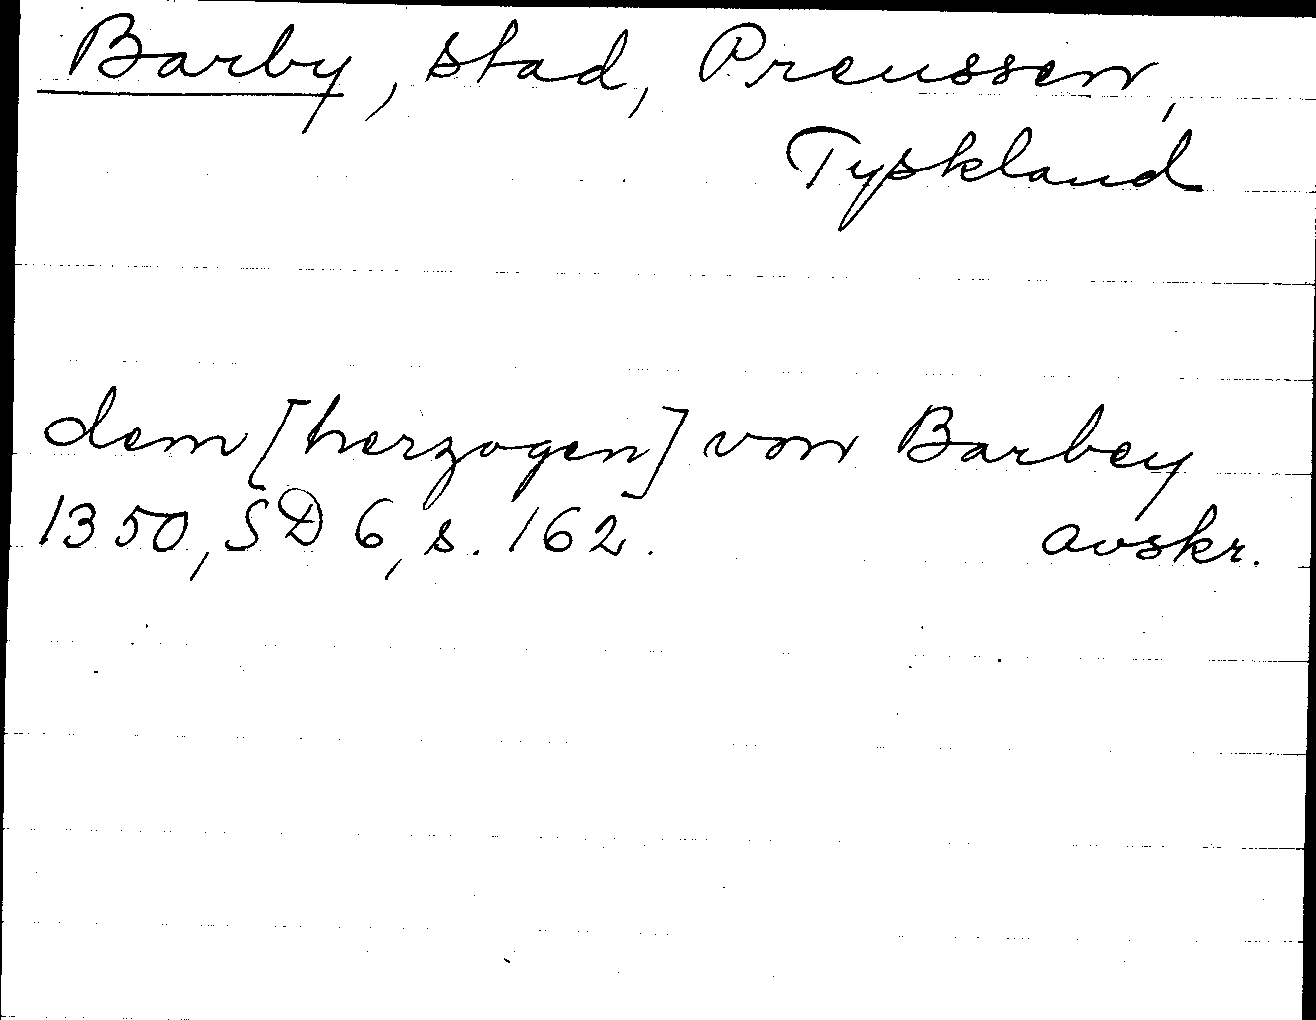 Barby, stad, Preussen,
Tyskland
dem [herzogen] von Barbey
1350, SD 6, s. 162. avskr.